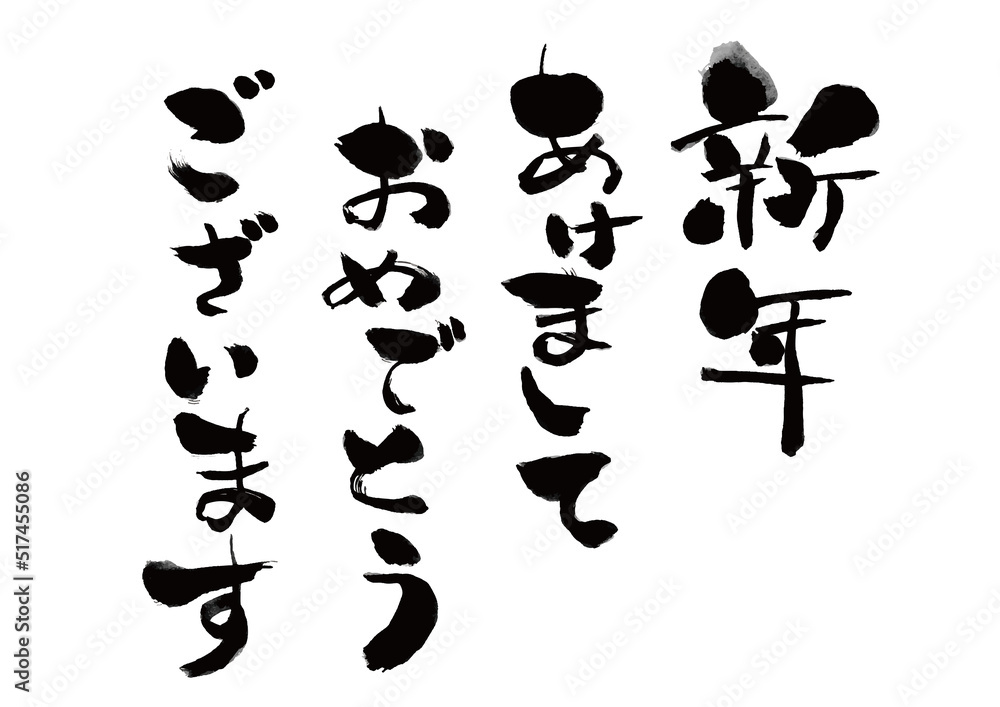 新年
あけまして
おめでとう
ございます
Adobe Stock | #517455086